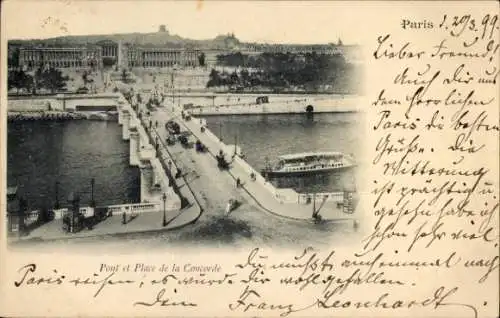 PARIS, 20/3. 99.
Lieber Freund,
Auch Dir aus
dem herrlichen
Paris die besten
Grüße. Die
Witterung
ist prächtig und
gesehen habe ich
schon sehr viel
Pont et Place de la Concorde
Du mußt auch einmal nach
Paris
Dir
wohl gefallen.
Dein
Franz Leonhardt